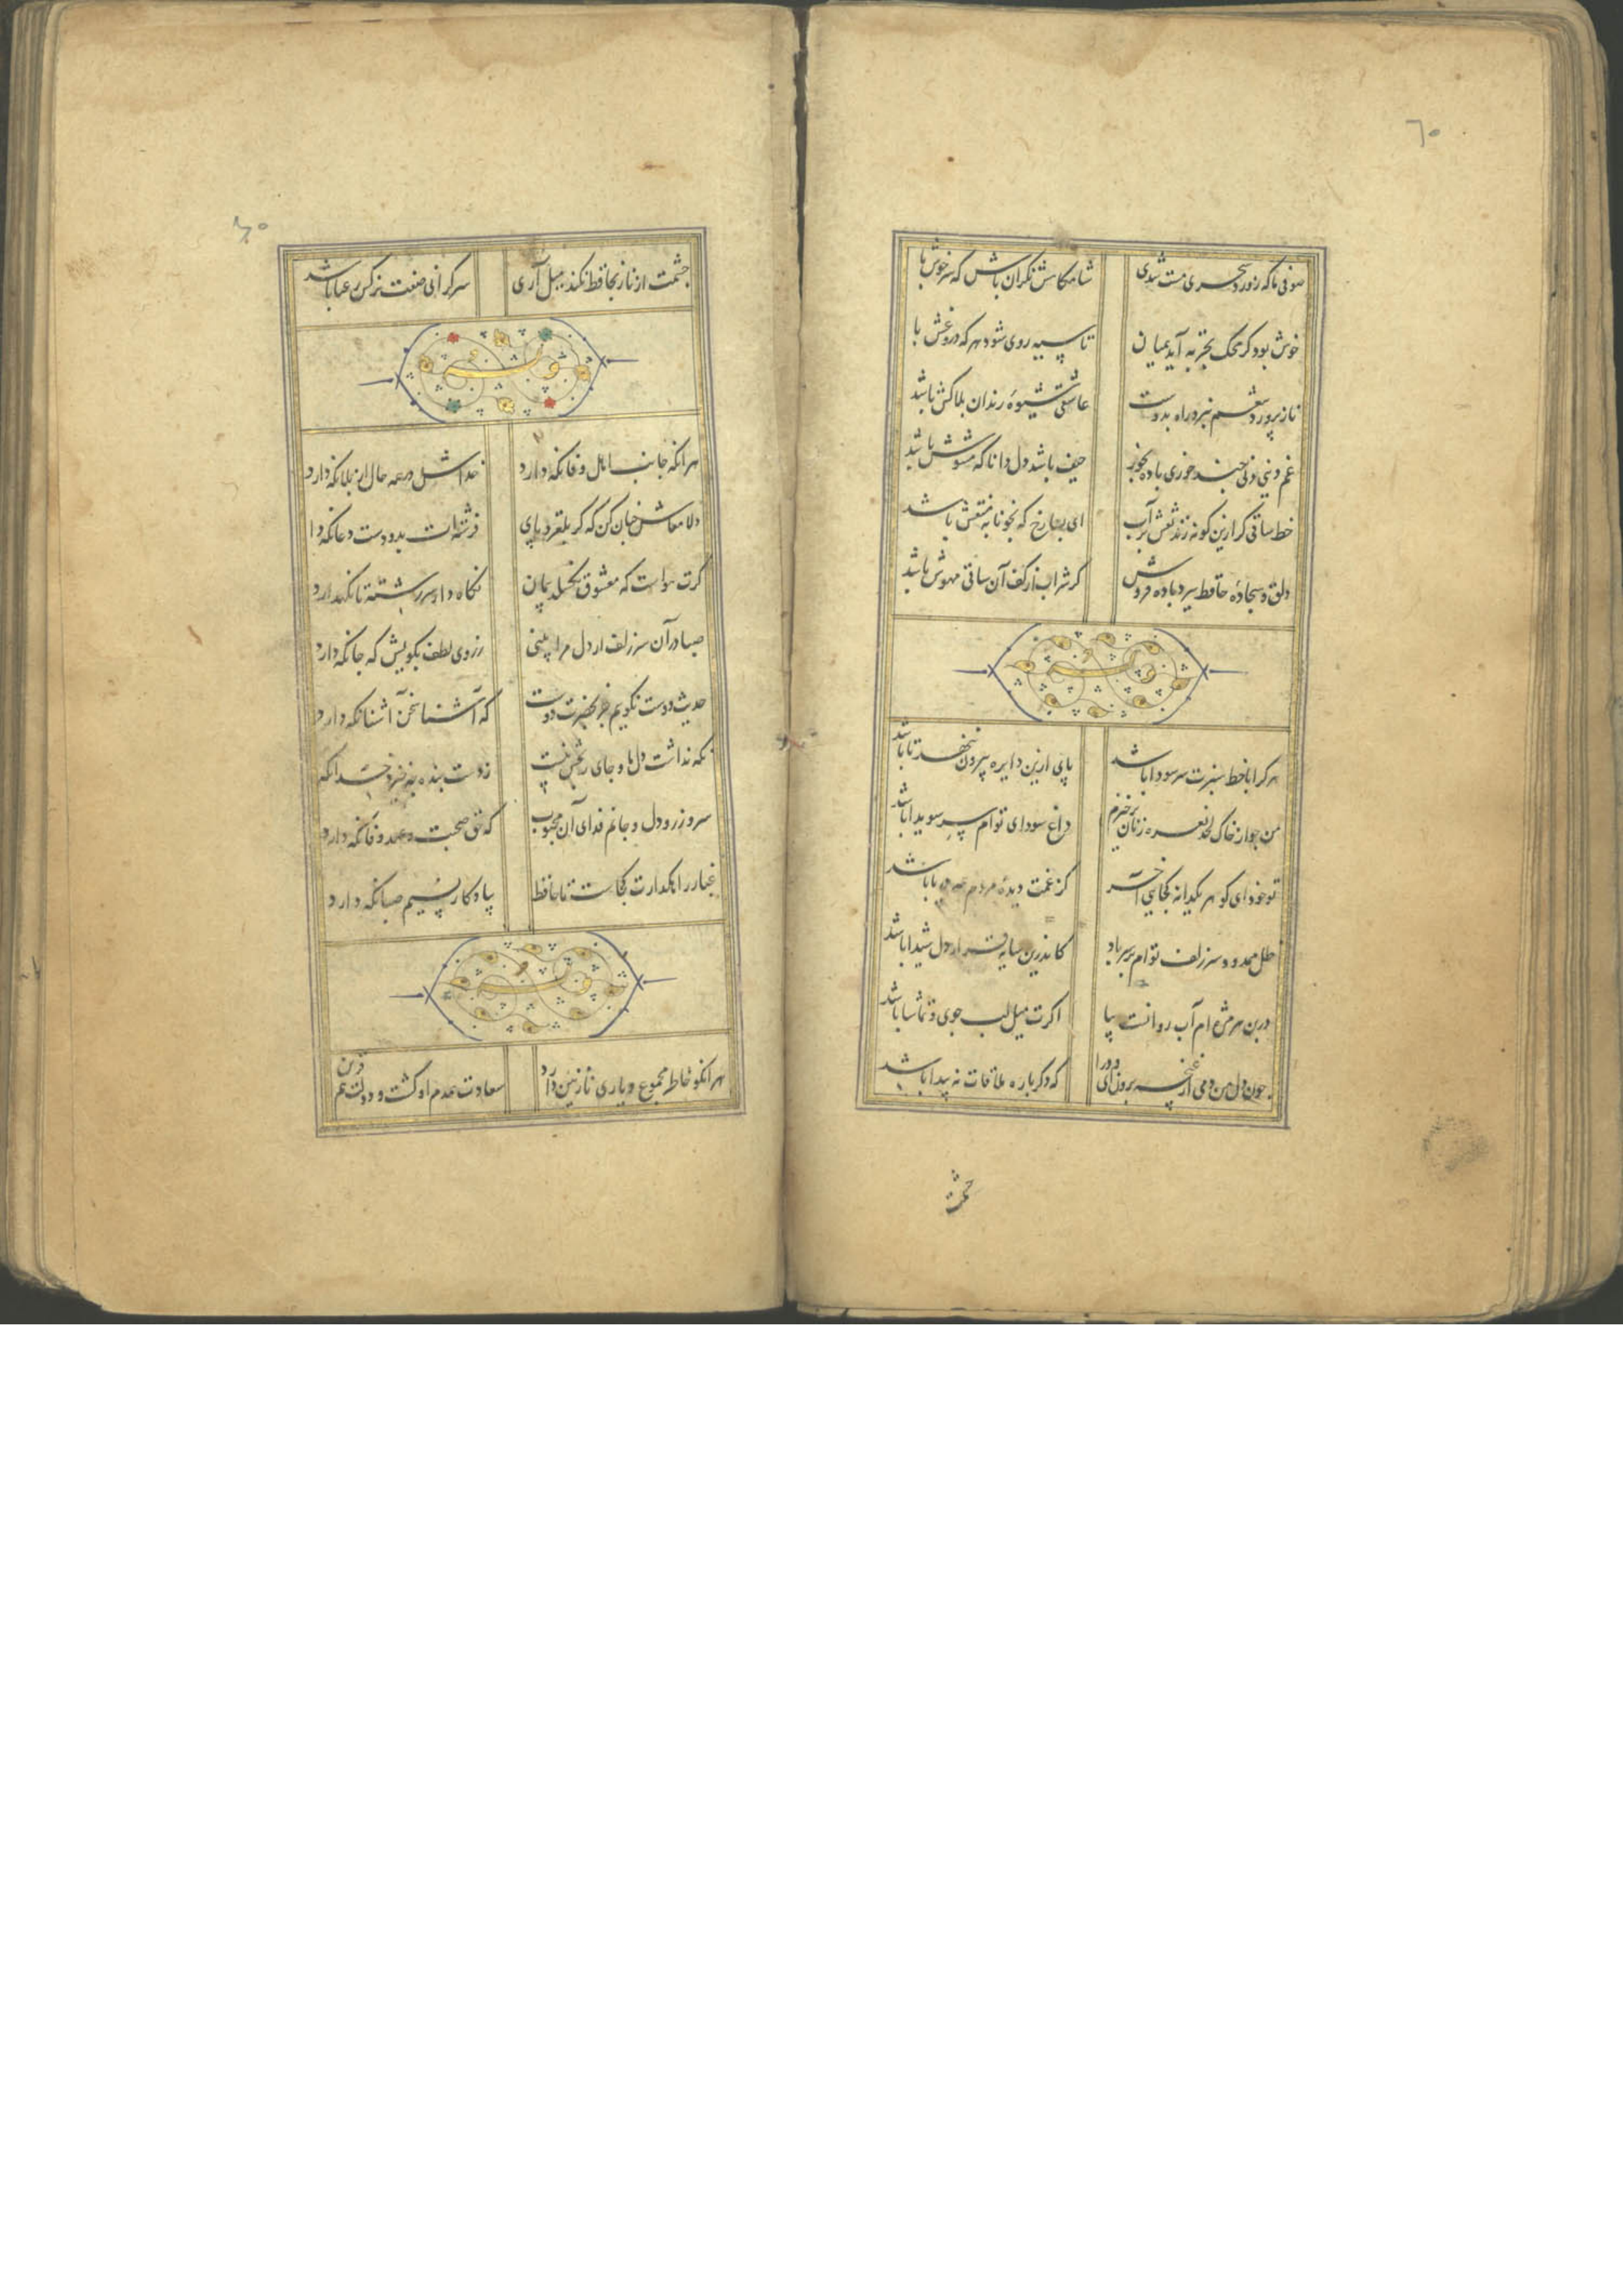 ٦٠
صوفی ما که ز ورد سحری مست شدی شامگاهش نگران باش که سرخوش با
خوش بود کر محک تجربه آید بمیان تا سیه روی شود هر که دروغش با
ناز پرورد تنعم نبرد راه بدوست عاشقی شیوهٔ رندان بلاکش باشد
غم دنیی دنی چند خوری باده بخور حیف باشد دل دانا که مشوش باشد
خط ساقی کر ازین کونه زند نقش بر آب ای بسا رخ که بخونابه منقش باشد
دلق و سجادهٔ حافظ ببرد باده فروش کر شراب از کف آن ساقی مهوش باشد
وله
هر کرا با خط سبزت سر سودا باشد پای ازین دایره بیرون ننهد تا باشد
من چو از خاک لحد نعره زنان برخیزم داغ سودای توام سر سویدا باشد
تو خود ای کوهر یکدانه کجایی آخر کز غمت دیدهٔ مردم همه دریا باشد
ظل ممدود سر زلف توام بر سر باد کاندرین سایه قرار دل شیدا باشد
در بن هر مژه ام آب روانست بیا اکرت میل لب جوی و تماشا باشد
چون دل من دمی از غنچه برون آی و درا که دکر باره ملاقات نه پیدا باشد
چشمت
٦٠
چشمت از ناز بحافظ نکند میل آری سرکرانی صفت نرکس رعنا باشد
وله
هر انکه جانب اهل وفا نکه دارد خداش در همه حال از بلا نکه دارد
دلا معاش چنان کن که کر بلغزد پای فرشته ات بدو دست دعا نکه دا
کرت هواست که معشوق نکسلد پیمان نکاه دار سر رشته تا نکهدارد
صبا در آن سر زلف ار دل مرا بینی ز روی لطف بکویش که جا نکه دارد
حدیث دوست نکویم مکر بحضرت دوست که آشنا سخن آشنا نکه دارد
نکه نداشت دل ما و جای رنجش نیست ز دست بنده چه خیزد خدا نکه
سر و زر و دل و جانم فدای آن محبوب که حق صحبت و عهد وفا نکه دارد
غبار راهکذارت کجاست تا حافظ بیادکار نسیم صبا نکه دارد
وله
هر انکو خاطر مجموع و یاری نازنین دارد سعادت همدم او کشت و دولت هم قرین